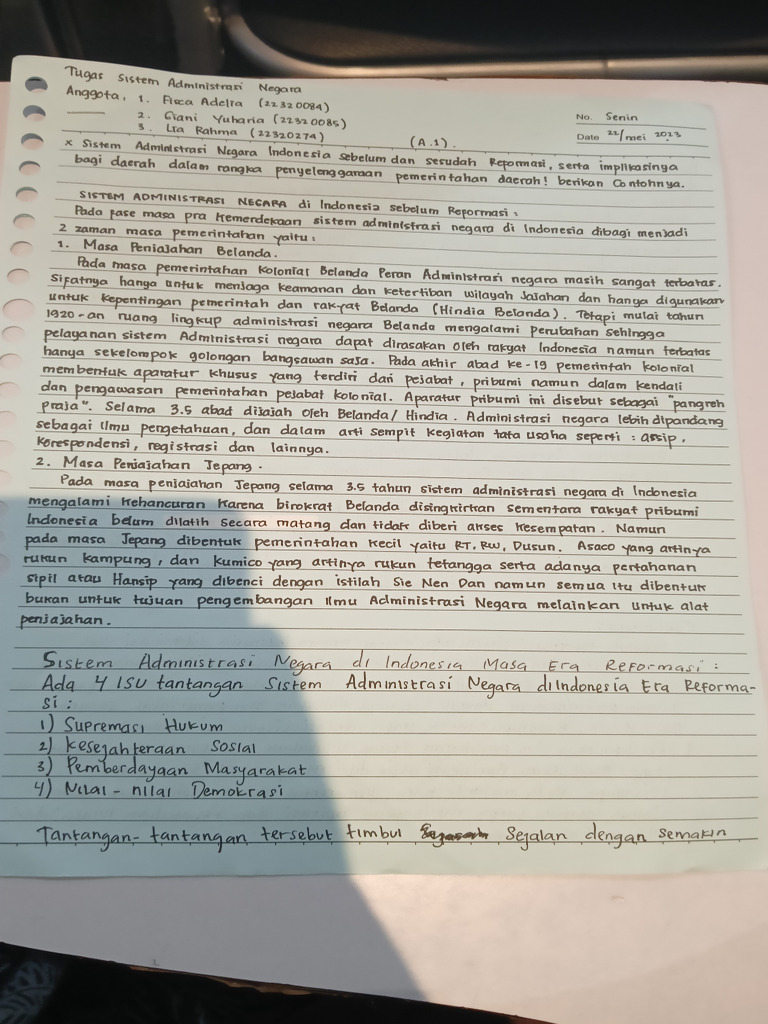 Tugas Sistem Administrasi Negara
Anggota, 1. Fisca Adelia (22320084)
2. Giani Yuharia (22320085)
3. Lia Rahma (22320274)
(A.1).
No. Senin
Date 22/mei 2023
x Sistem Administrasi Negara Indonesia sebelum dan sesudah Repormasi, serta implikasinya
bagi daerah dalam rangka penyelenggaraan pemerintahan daerah! berikan Contohnya.
SISTEM ADMINISTRASI NEGARA di Indonesia sebelum Repormasi :
Pada fase masa pra Kemerdekaan sistem administrasi negara di Indonesia dibagi menjadi
2 zaman masa pemerintahan yaitu :
1. Masa Penjajahan Belanda.
Pada masa pemerintahan Kolonial Belanda Peran Administrasi negara masih sangat terbatas.
Sifatnya hanya untuk menjaga keamanan dan ketertiban wilayah Jajahan dan hanya digunakan
untuk kepentingan pemerintah dan rakyat Belanda (Hindia Belanda). Tetapi mulai tahun
1920-an ruang lingkup administrasi negara Belanda mengalami perubahan sehingga
pelayanan sistem Administrasi negara dapat dirasakan oleh rakyat Indonesia namun terbatas
hanya sekelompok golongan bangsawan saja. Pada akhir abad ke-19 pemerintah kolonial
membentuk aparatur khusus yang terdiri dari pejabat, pribumi namun dalam kendali
dan pengawasan pemerintahan pejabat kolonial. Aparatur pribumi ini disebut sebagai "pangreh
praja". Selama 3.5 abad dijajah oleh Belanda/Hindia. Administrasi negara lebih dipandang
sebagai ilmu pengetahuan, dan dalam arti sempit kegiatan tata usaha seperti : arsip,
korespondensi, registrasi dan lainnya.
2. Masa Penjajahan Jepang.
Pada masa penjajahan Jepang selama 3.5 tahun sistem administrasi negara di Indonesia
mengalami kehancuran karena birokrat Belanda disingkirkan sementara rakyat pribumi
Indonesia belum dilatih secara matang dan tidak diberi akses kesempatan. Namun
pada masa Jepang dibentuk pemerintahan kecil yaitu RT, RW, Dusun. Asaco yang artinya
rukun kampung, dan Kumico yang artinya rukun tetangga serta adanya pertahanan
sipil atau Hansip yang dibenci dengan istilah Sie Nen Dan namun semua itu dibentuk
bukan untuk tujuan pengembangan ilmu Administrasi Negara melainkan untuk alat
penjajahan.
Sistem Administrasi Negara di Indonesia Masa Era Reformasi :
Ada 4 ISU tantangan Sistem Administrasi Negara diIndonesia Era Reforma-
si :
1) Supremasi Hukum
2) Kesejahteraan Sosial
3) Pemberdayaan Masyarakat
4) Nilai - nilai Demokrasi
Tantangan-tantangan tersebut timbul Sejalan dengan semakin